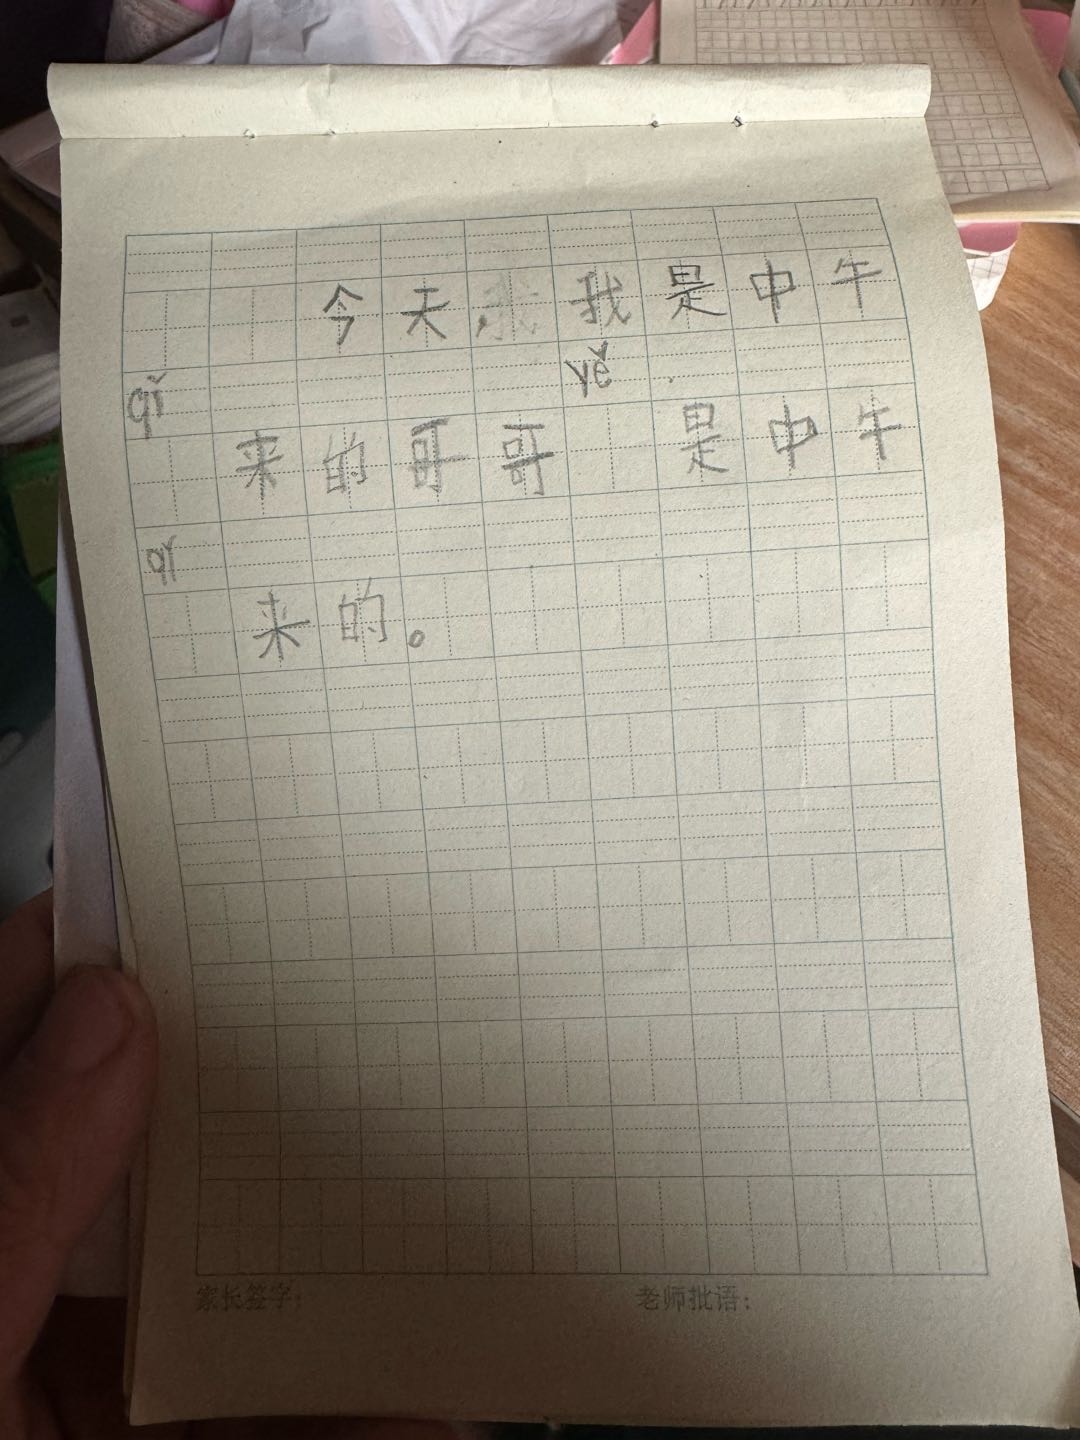 今天我是中午
qǐ来的哥哥yě是中午
qǐ来的。
家长签字：
老师批语：